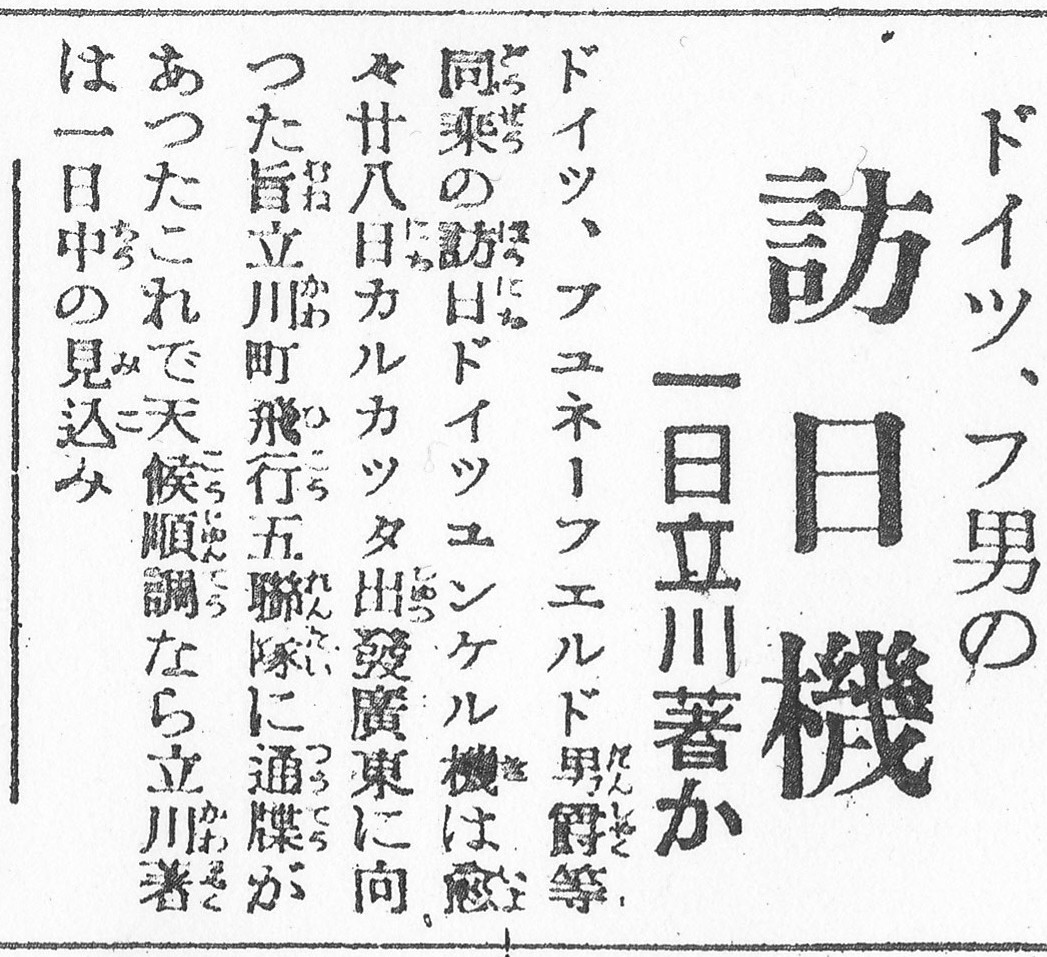 ドイツ、フ男の
訪日機
一日立川著か
ドイツ、フュネーフエルド男爵等
同乘の訪日ドイツユンケル機は愈
々廿八日カルカツタ出發廣東に向
つた旨立川町飛行五聯隊に通牒が
あつたこれで天候順調なら立川著
は一日中の見込み